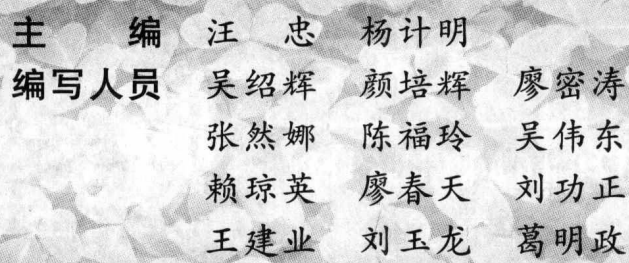 主 编 汪 忠 杨计明
编写人员 吴绍辉 颜培辉 廖密涛
张然娜 陈福玲 吴伟东
赖琼英 廖春天 刘功正
王建业 刘玉龙 葛明政